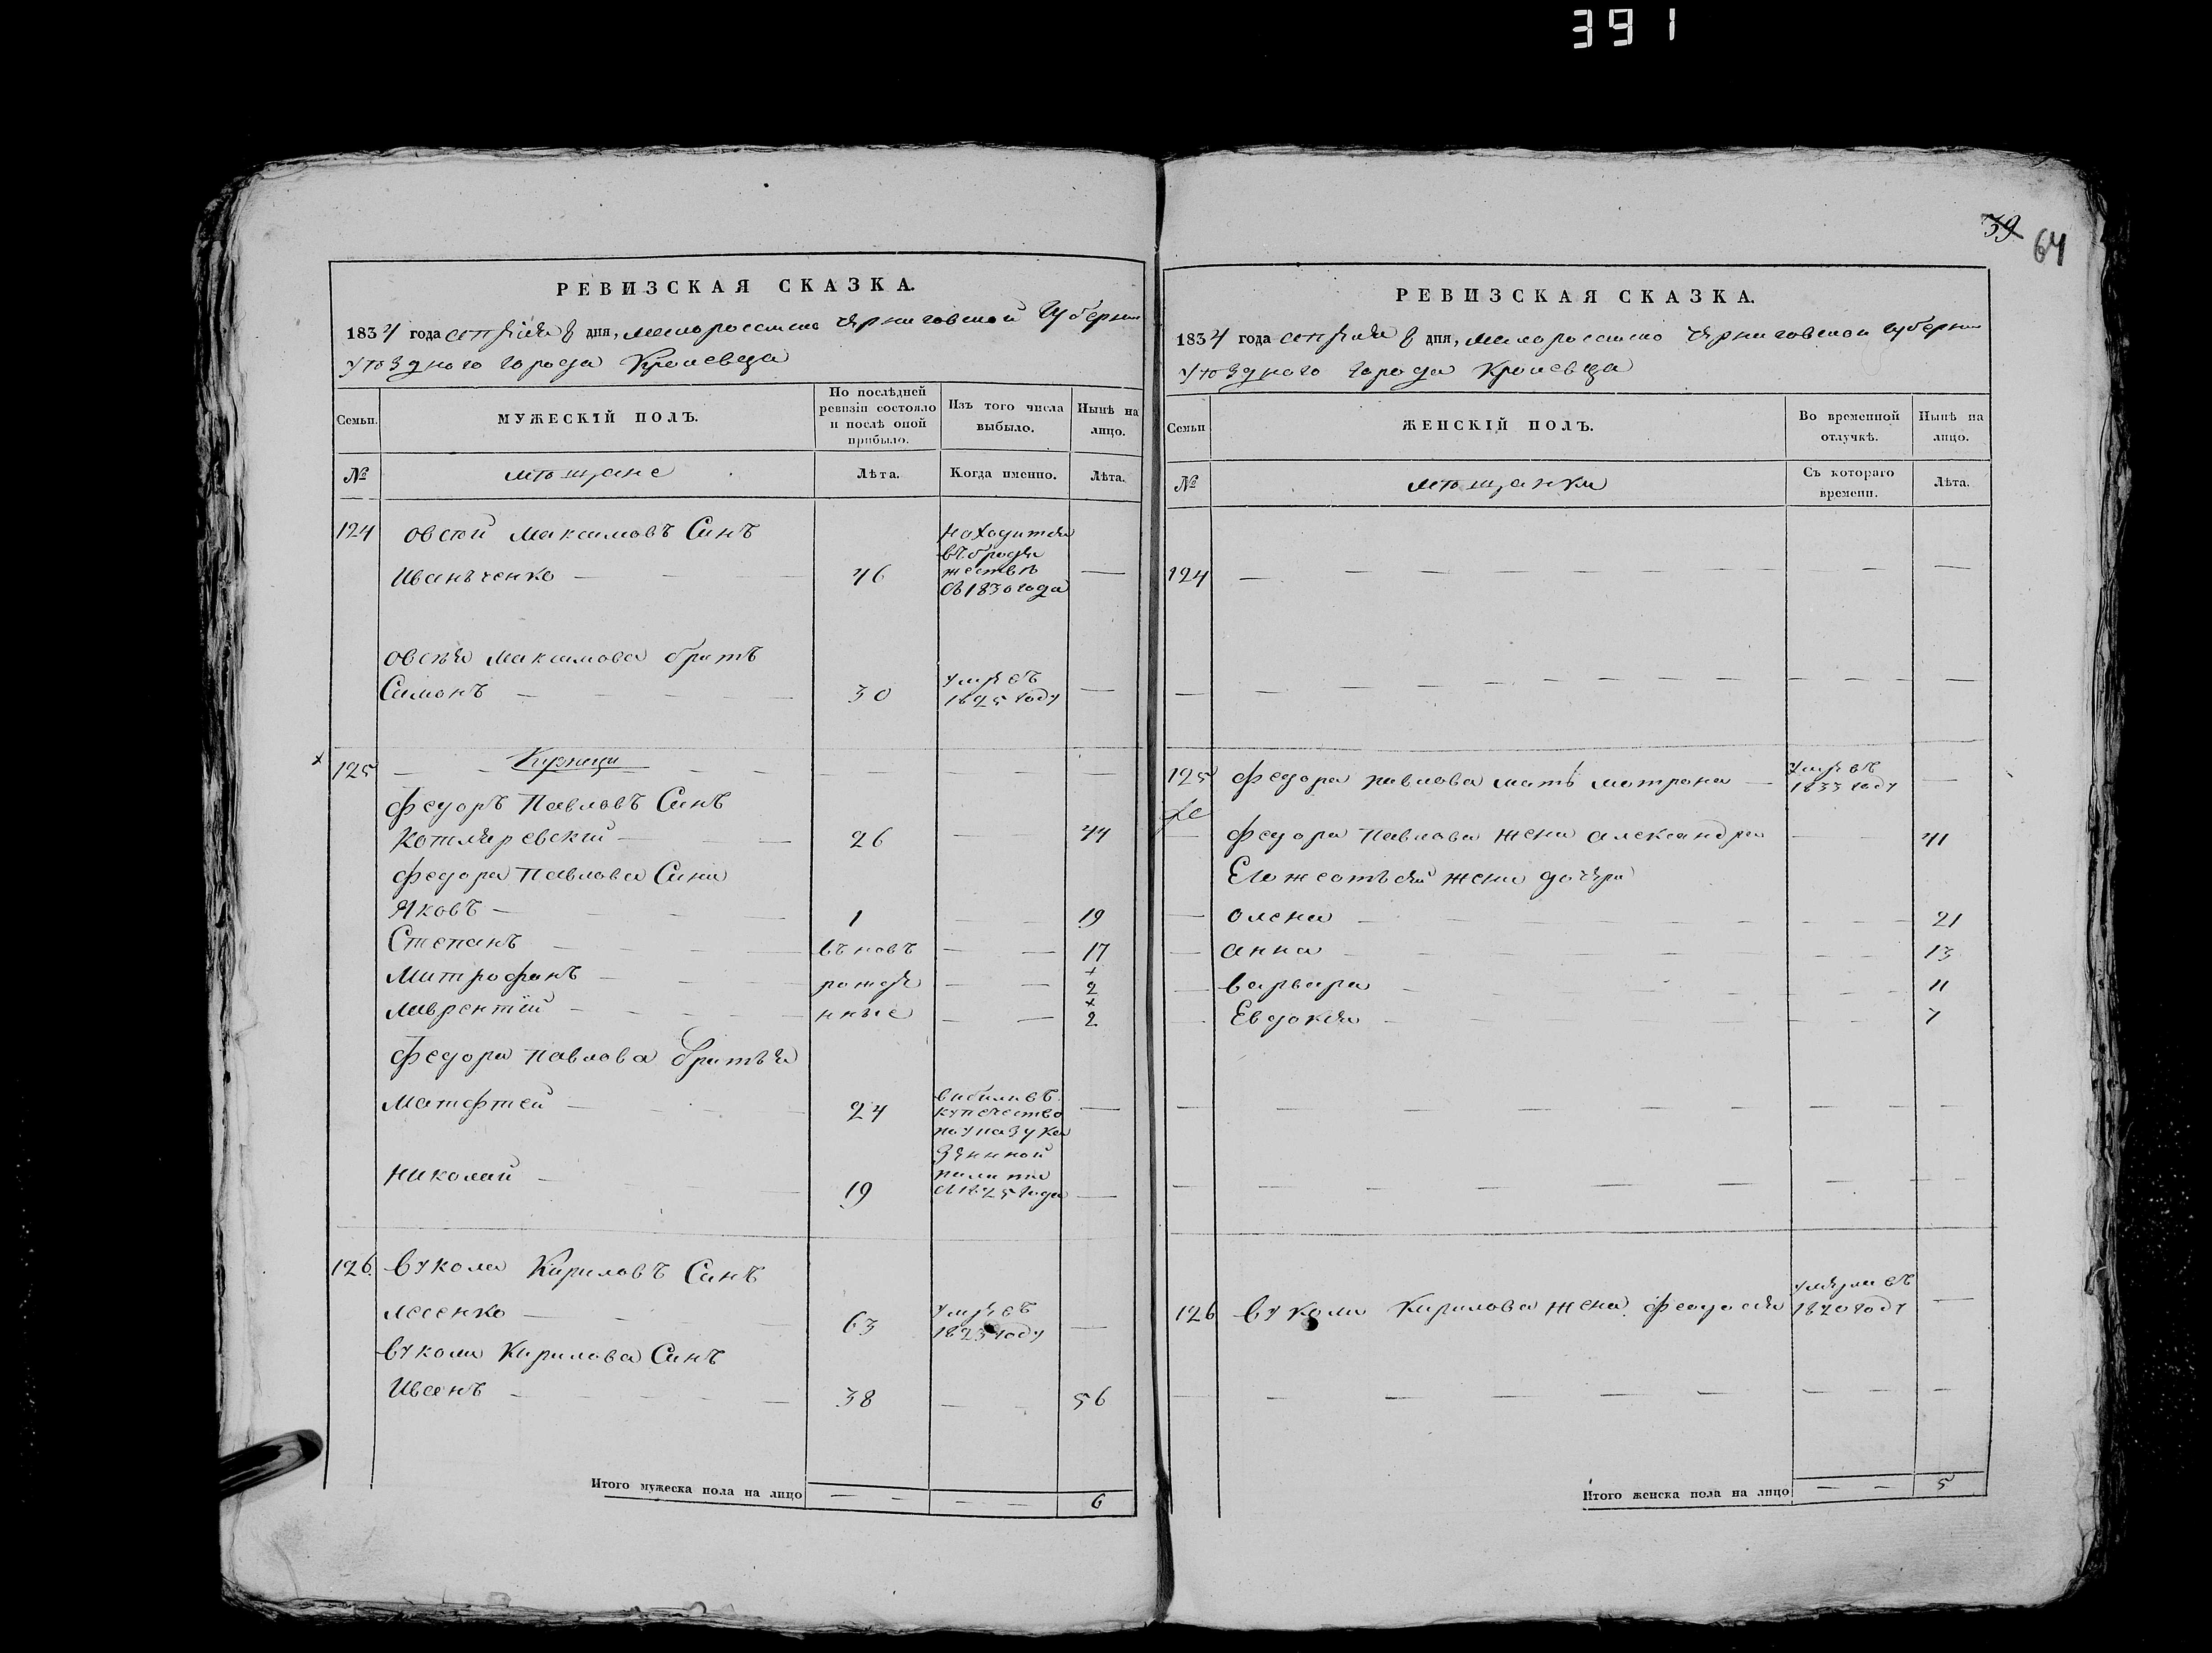 391
39 64
РЕВИЗСКАЯ СКАЗКА.
1834 года сентября дня, малороссийско черниговской губернии
уѣзднаго города Кролевца
Семьи.
МУЖЕСКІЙ ПОЛЪ.
По послѣдней ревизіи состояло и послѣ оной прибыло.
Изъ того числа выбыло.
Нынѣ на лицо.
№ мѣщане Лѣта. Когда именно. Лѣта.
124 овсѣй максимовъ Синъ
Иванченко — 46 — находится въ бродяжествѣ съ 1830 года —
овсѣя максимова братъ
Симонъ — 30 умре въ 1825 году —
125 — Кузнеци —
федоръ Павловъ Синъ
Котляревский — 26 — 44
федора Павлова Сини
Яковъ — 1 — 19
Степанъ — въновъ — 17
митрофанъ — рожде — 2
лаврентій — нные — 2
федора павлова братья
матфтей — 24
николай — 19
вибили въ купечество по указу казенной палати съ 1825 года
126 вукола Кириловъ Синъ
лесенко — 63 умре въ 1823 году —
вукола Кирилова Синъ
Иванъ — 38 — 56
Итого мужеска пола на лицо — — 6
РЕВИЗСКАЯ СКАЗКА.
1834 года сентября дня, малороссийско черниговской губернии
уѣзднаго города Кролевца
Семьи
ЖЕНСКІЙ ПОЛЪ.
Во временной отлучкѣ.
Нынѣ на лицо.
№ мѣщанки Съ котораго времени. Лѣта.
124 —
125 федора павлова мать матрона — умре въ 1833 году —
— федора павлова жена александра — 41
Его же отъ сей жени дочери
— олена — 21
— анна — 13
— варвара — 11
— Евдокия — 7
126 вукола Кирилова жена феодосия умерла въ 1820 году —
Итого женска пола на лицо — — 5